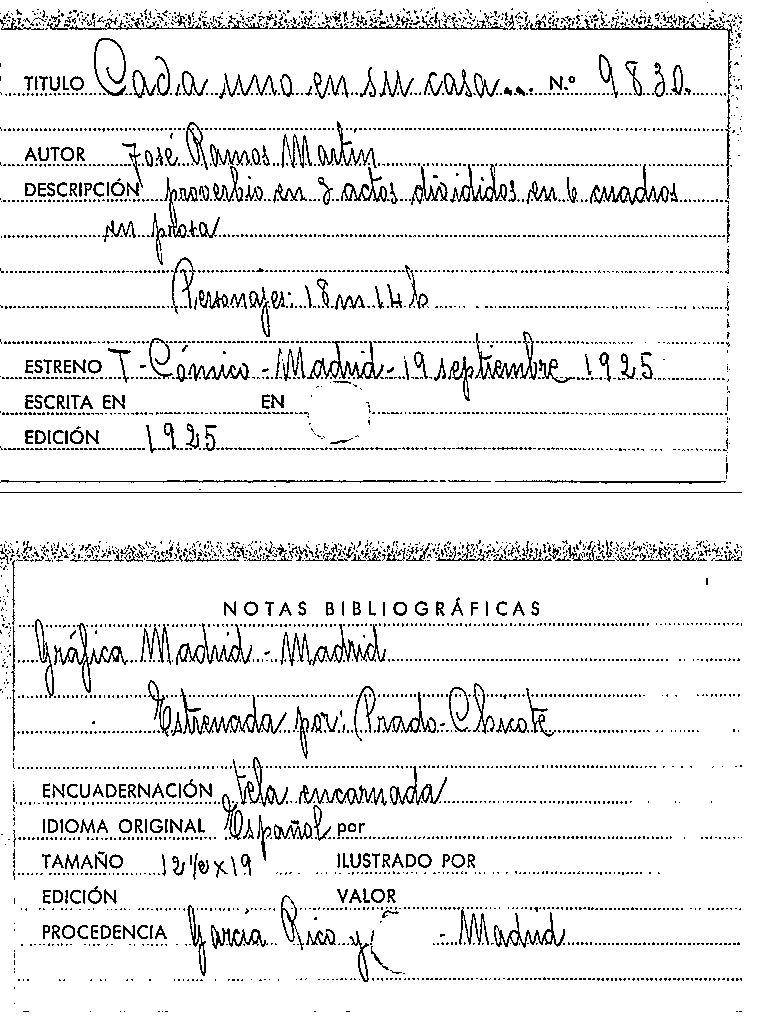 TITULO Cada uno en su casa... N.º 9830.
AUTOR José Ramos Martín
DESCRIPCIÓN proverbio en 2 actos divididos en 6 cuadros
en prosa
Personajes: 18 m 14 h
ESTRENO T-Cómico-Madrid-19 septiembre 1925
ESCRITA EN EN
EDICIÓN 1925
NOTAS BIBLIOGRÁFICAS
Gráfica Madrid - Madrid
Estrenada por: Prado-Chicote
ENCUADERNACIÓN tela encarnada
IDIOMA ORIGINAL Español por
TAMAÑO 12½x19 ILUSTRADO POR
EDICIÓN VALOR
PROCEDENCIA García Rico y - Madrid